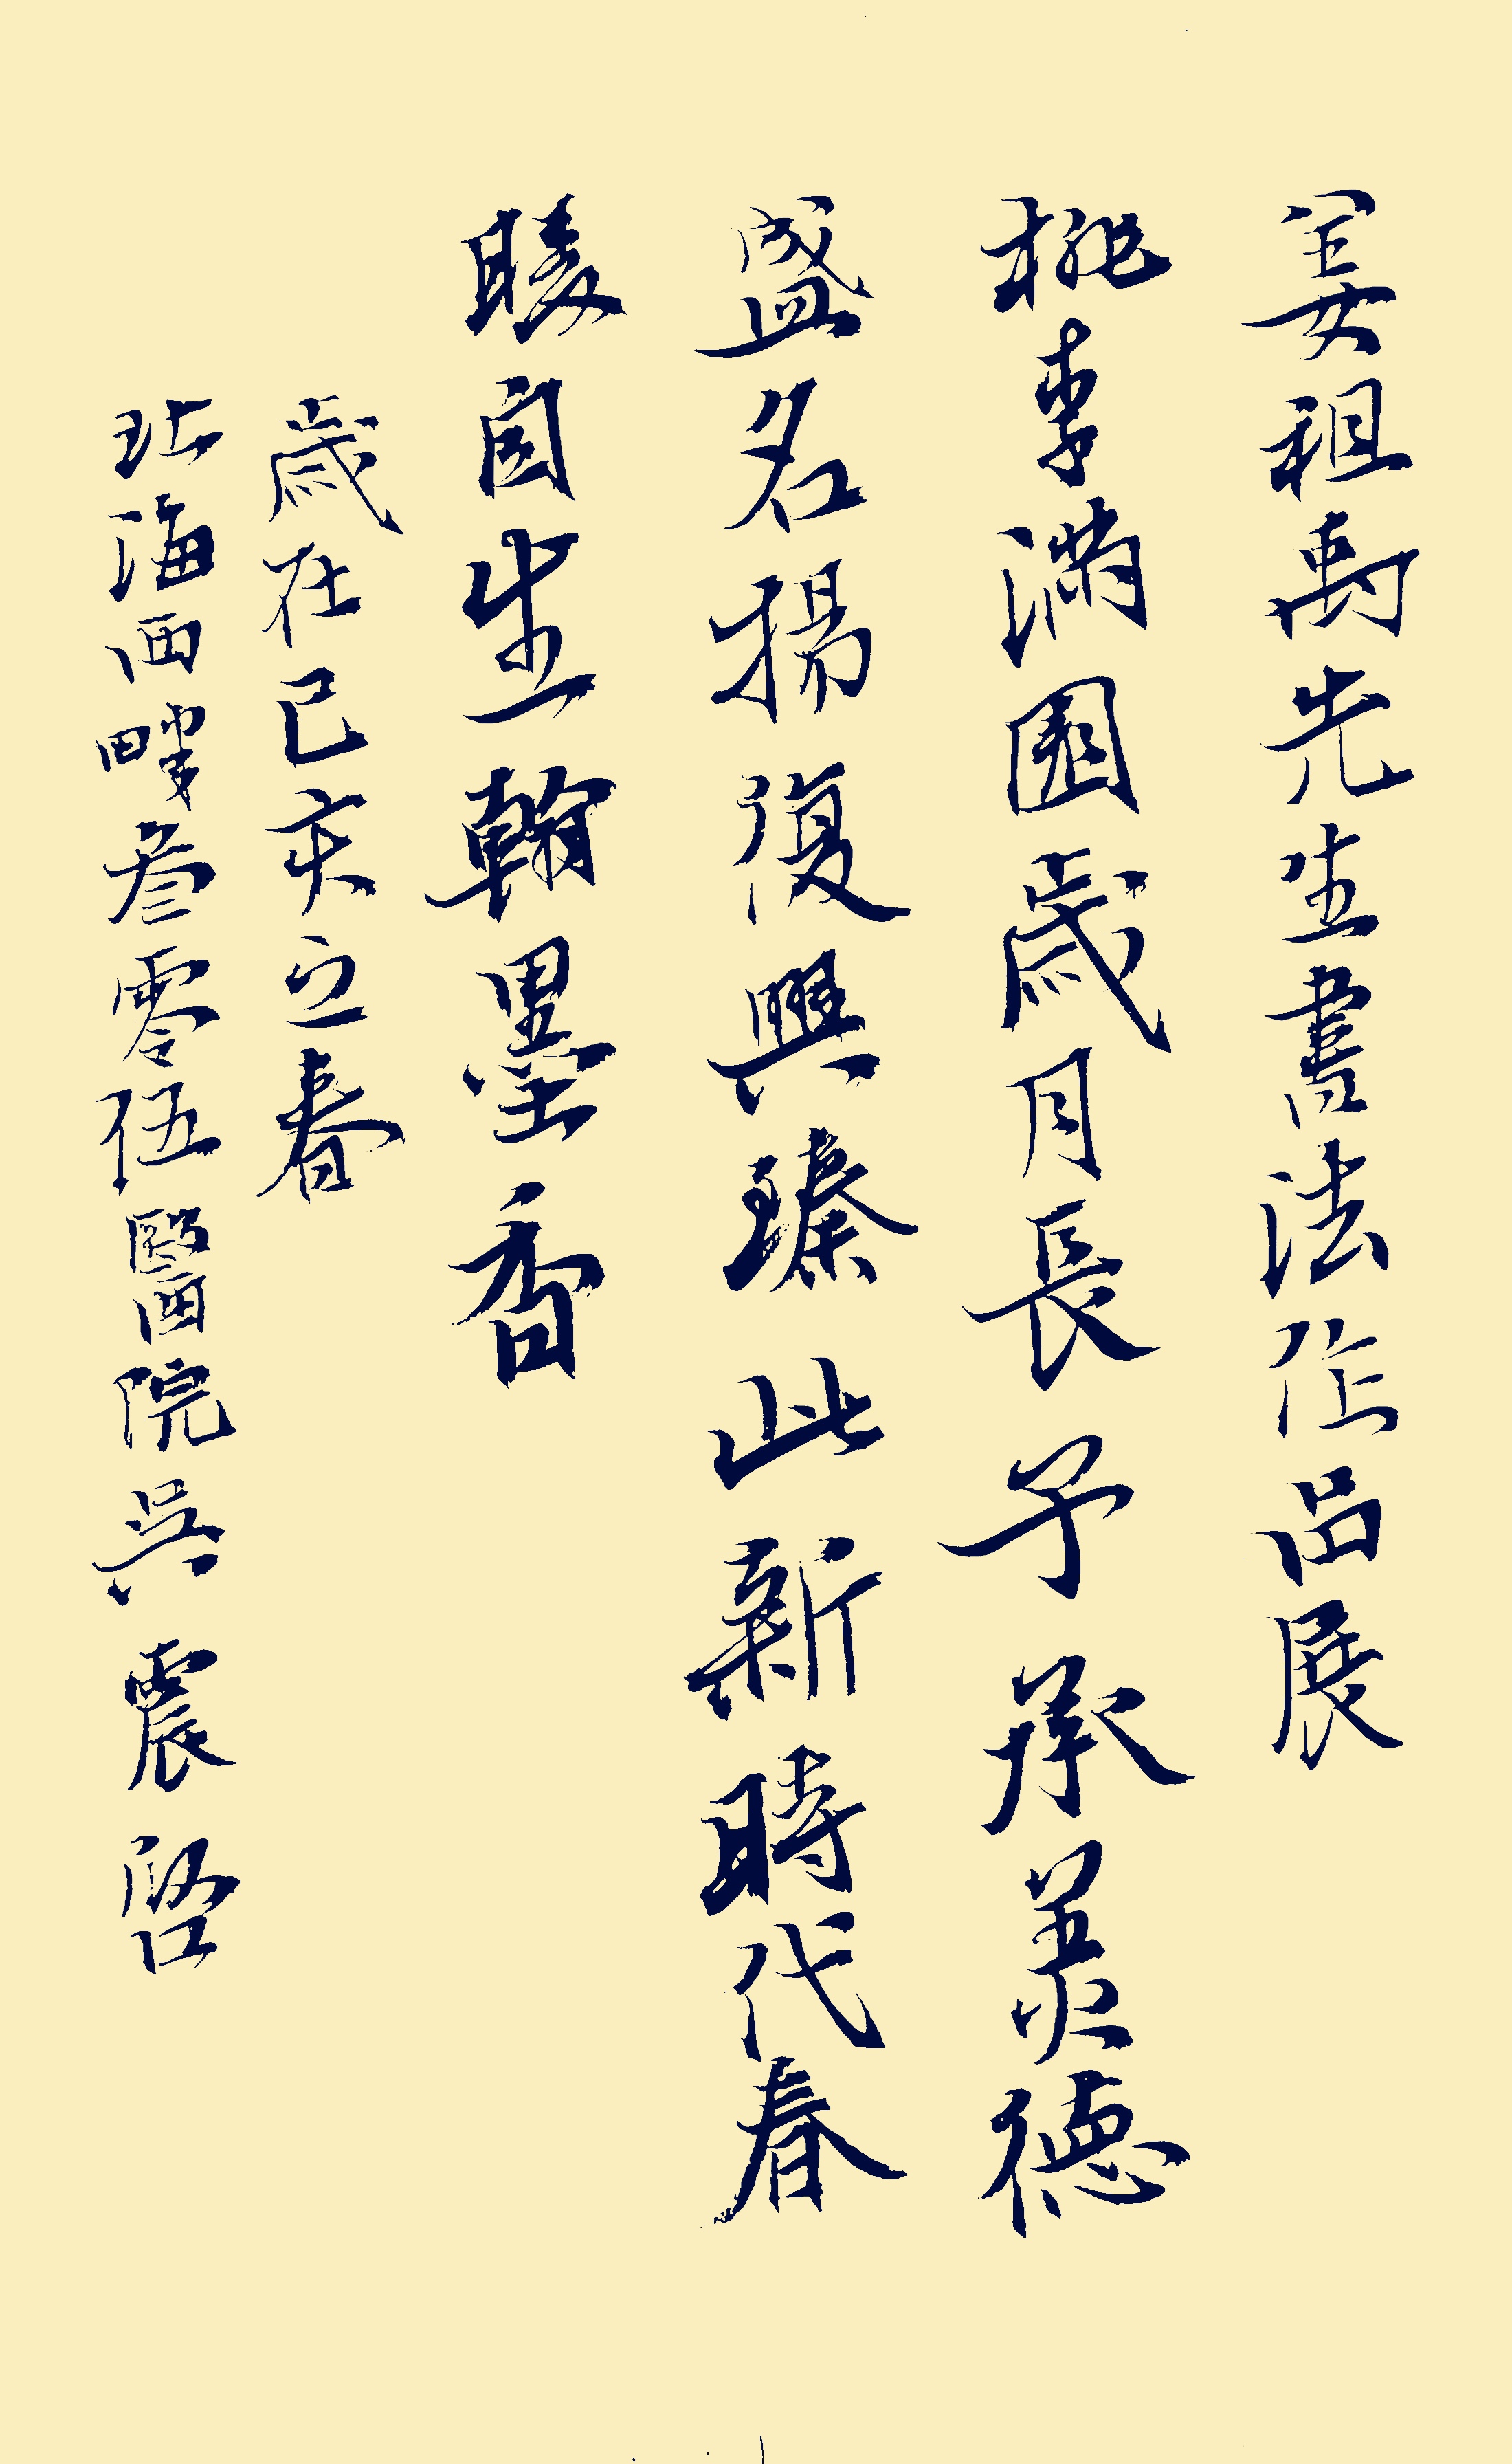 姜祖禹先生書法作品展
桃李滿園歲月長予承業德
盛名揚復興臻此新時代春
暖自生翰墨香
歲在己亥立春
北海西畔叁零伍醫院吳震啓